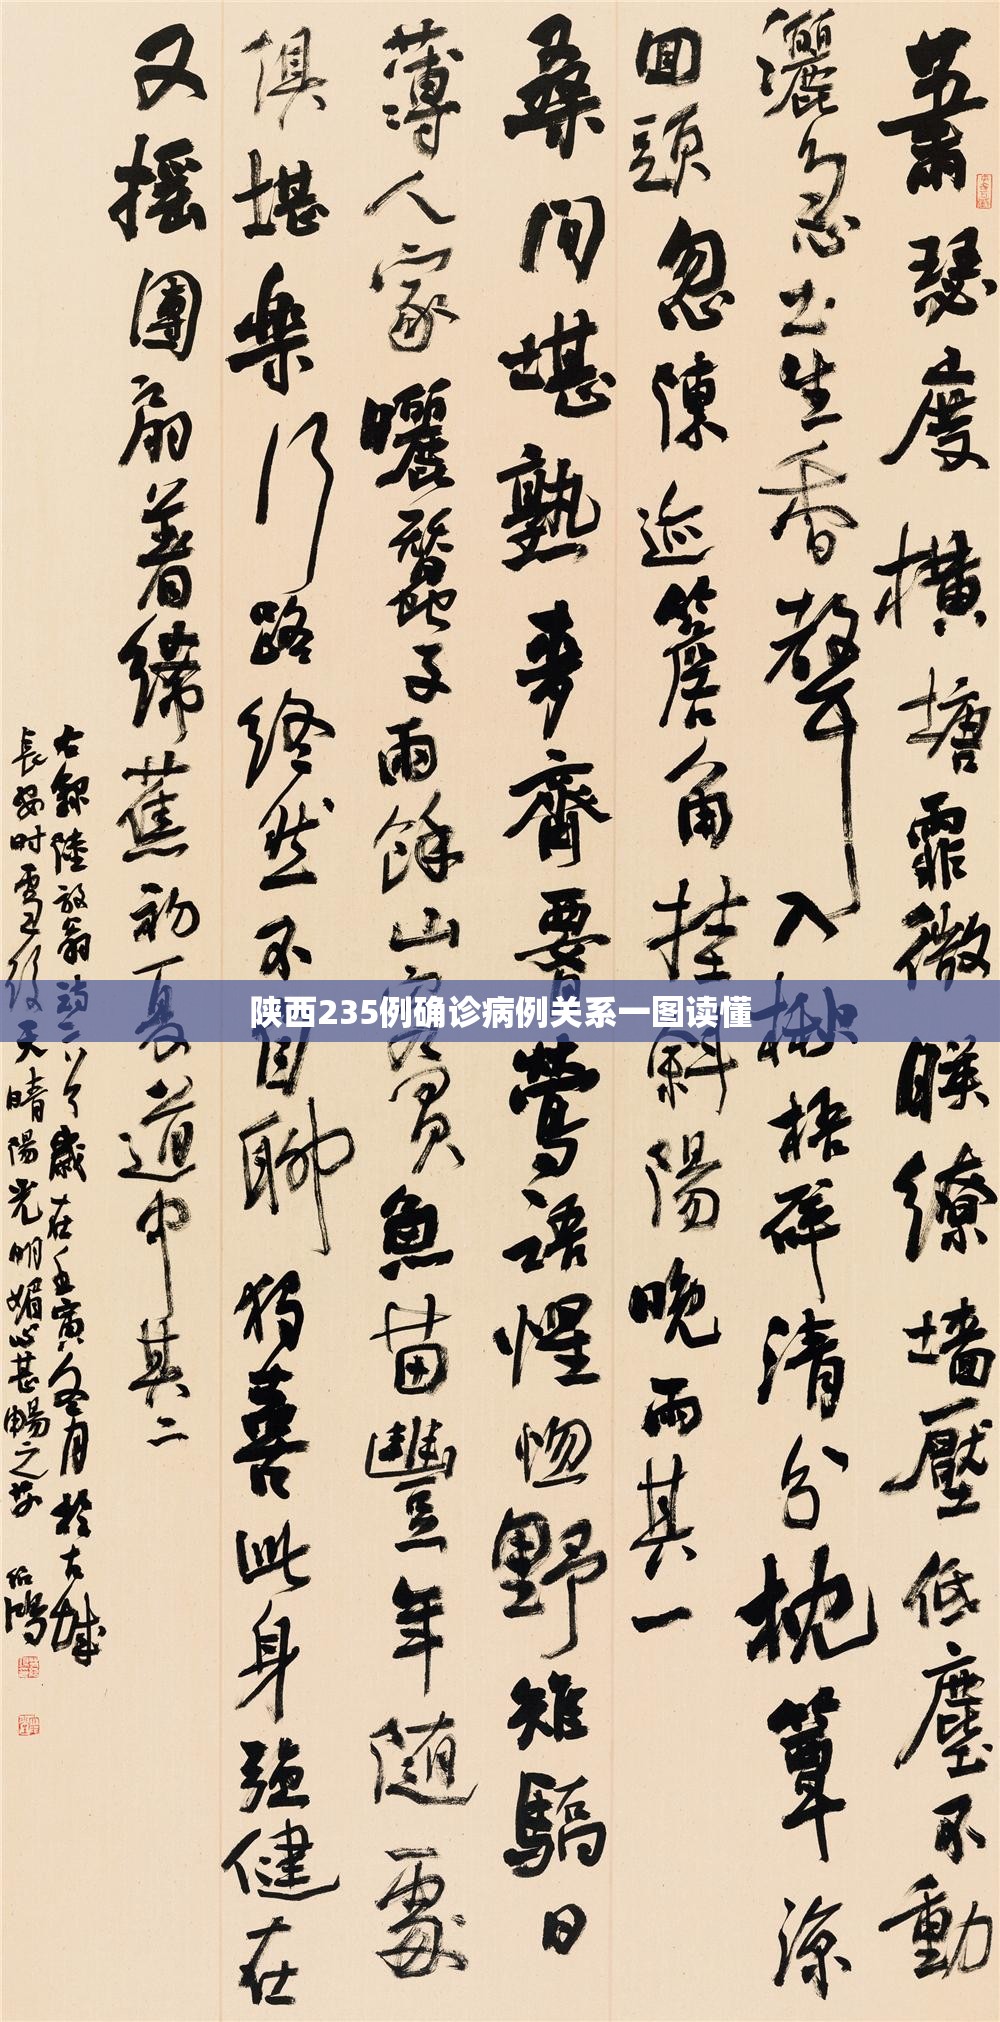 蕭瑟度横塘霏微映繚墙壓低塵不動
灑急土生香聲入楸梧碎清分枕簟涼
回頭忽陳迹簷角挂斜陽晚雨其一
桑间堪熟麥齊腰鶯語惺惚野雉驕日
薄人家曬蠶子雨餘山客買魚苗豐年隨處
俱堪樂行路終然不自聊獨喜此身強健在
又摇團扇著絺蕉初夏道中其二
右錄陸放翁詩二首歲在壬寅冬月於古城
長安时雪後天晴陽光明媚心甚暢之
陕西235例确诊病例关系一图读懂